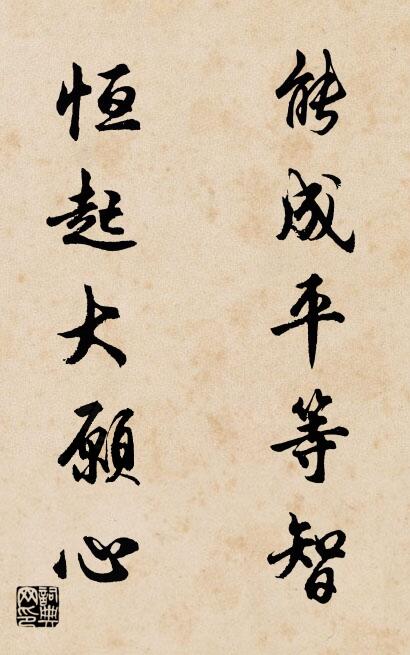 能成平等智
恒起大願心
詞典網印